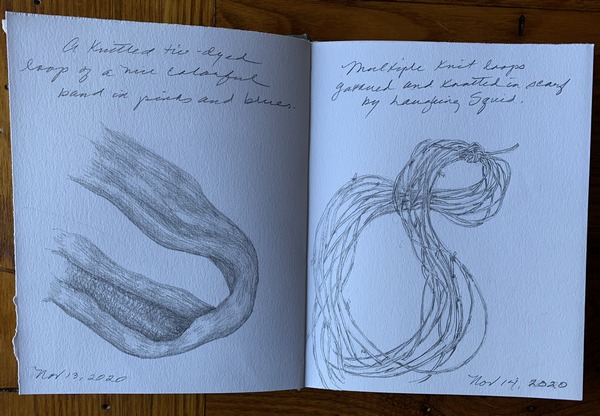 A Knitted tie-dyed
loop of a nice colorful
band in pinks and blues.
Nov 13, 2020
Multiple knit loops
gathered and knotted in scarf
by Laughing Squid.
Nov 14, 2020